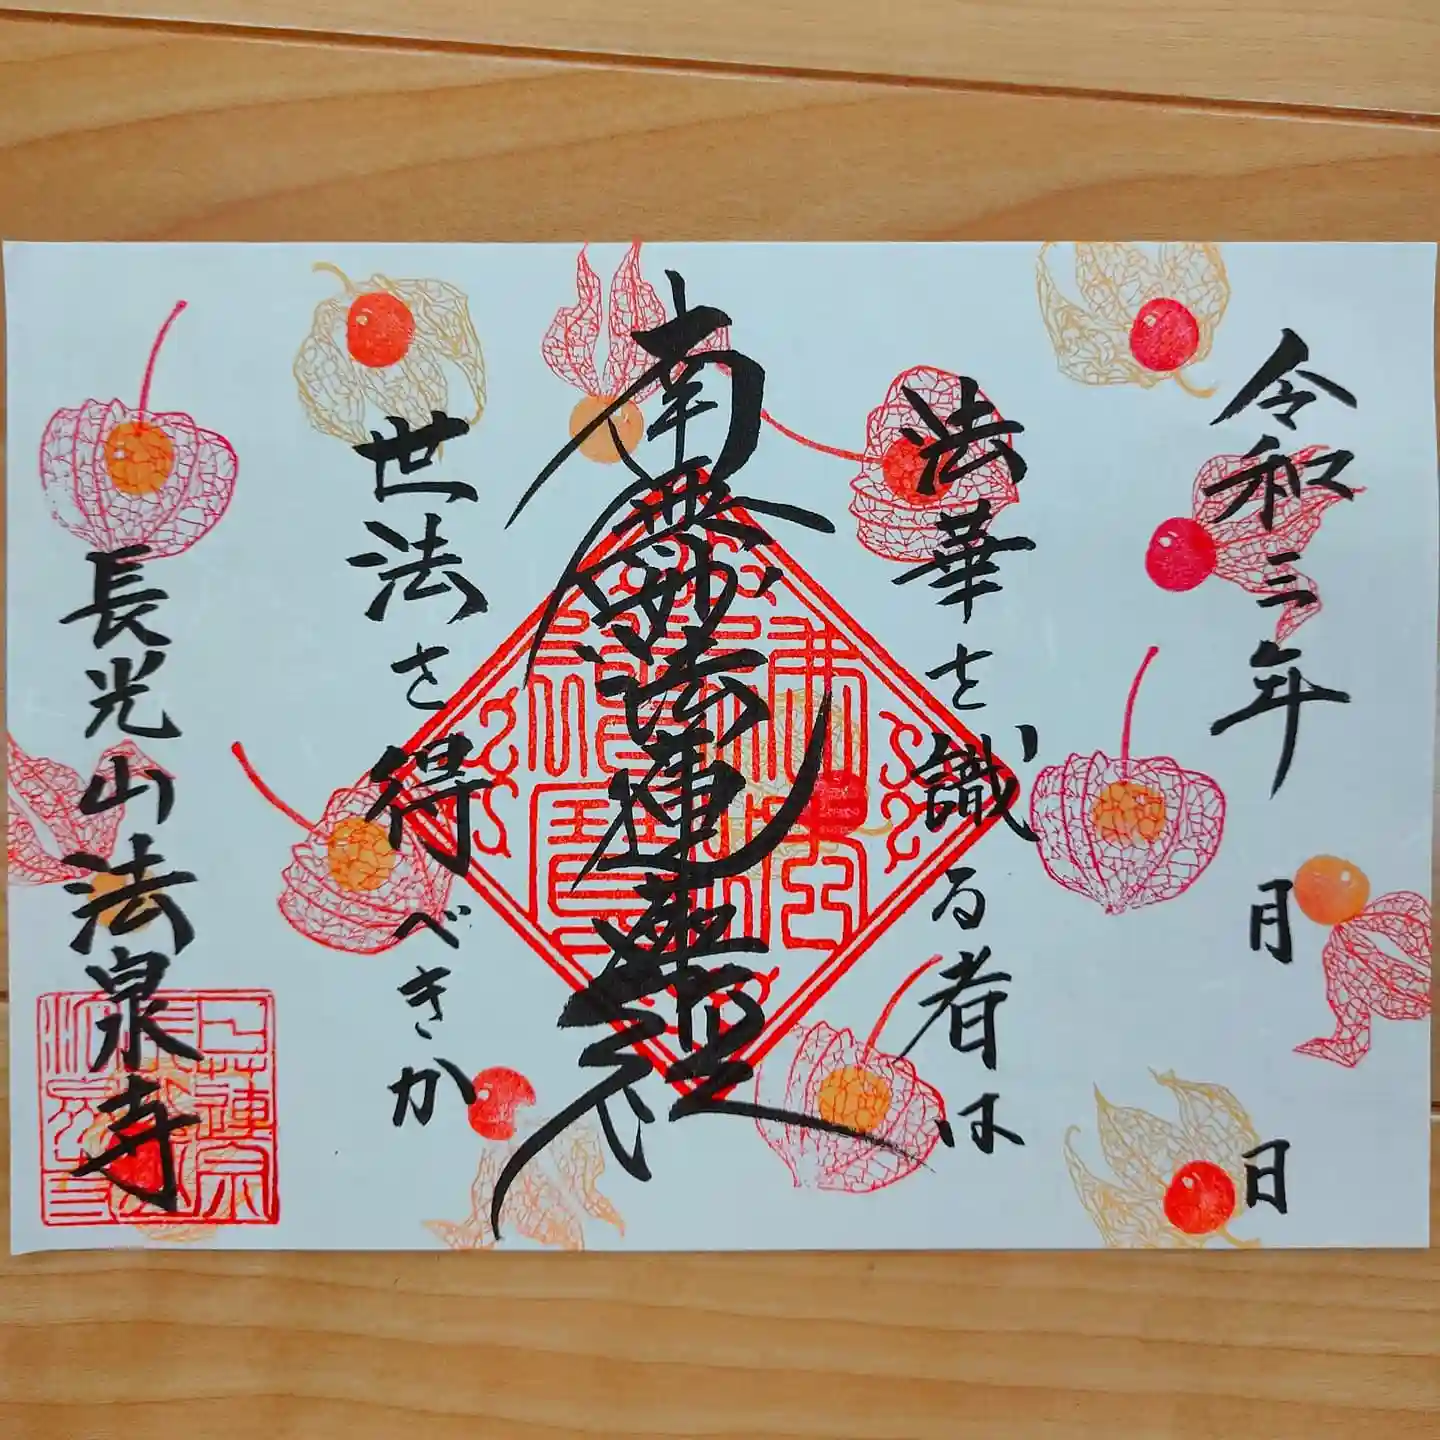 令和三年　月　日
法華を識る者は
南無妙法蓮華経
世法を得べきか
長光山法泉寺